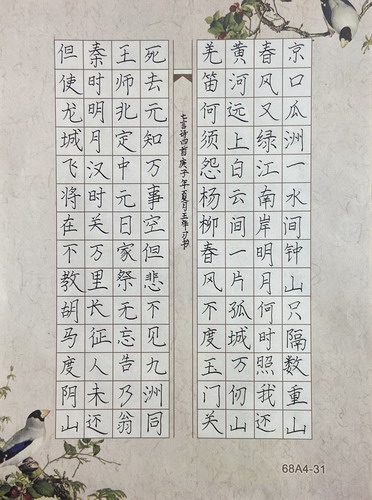 京口瓜洲一水间钟山只隔数重山
春风又绿江南岸明月何时照我还
黄河远上白云间一片孤城万仞山
羌笛何须怨杨柳春风不度玉门关
七言诗四首庚子年夏月习书
死去元知万事空但悲不见九洲同
王师北定中元日家祭无忘告乃翁
秦时明月汉时关万里长征人未还
但使龙城飞将在不教胡马度阴山
68A4-31